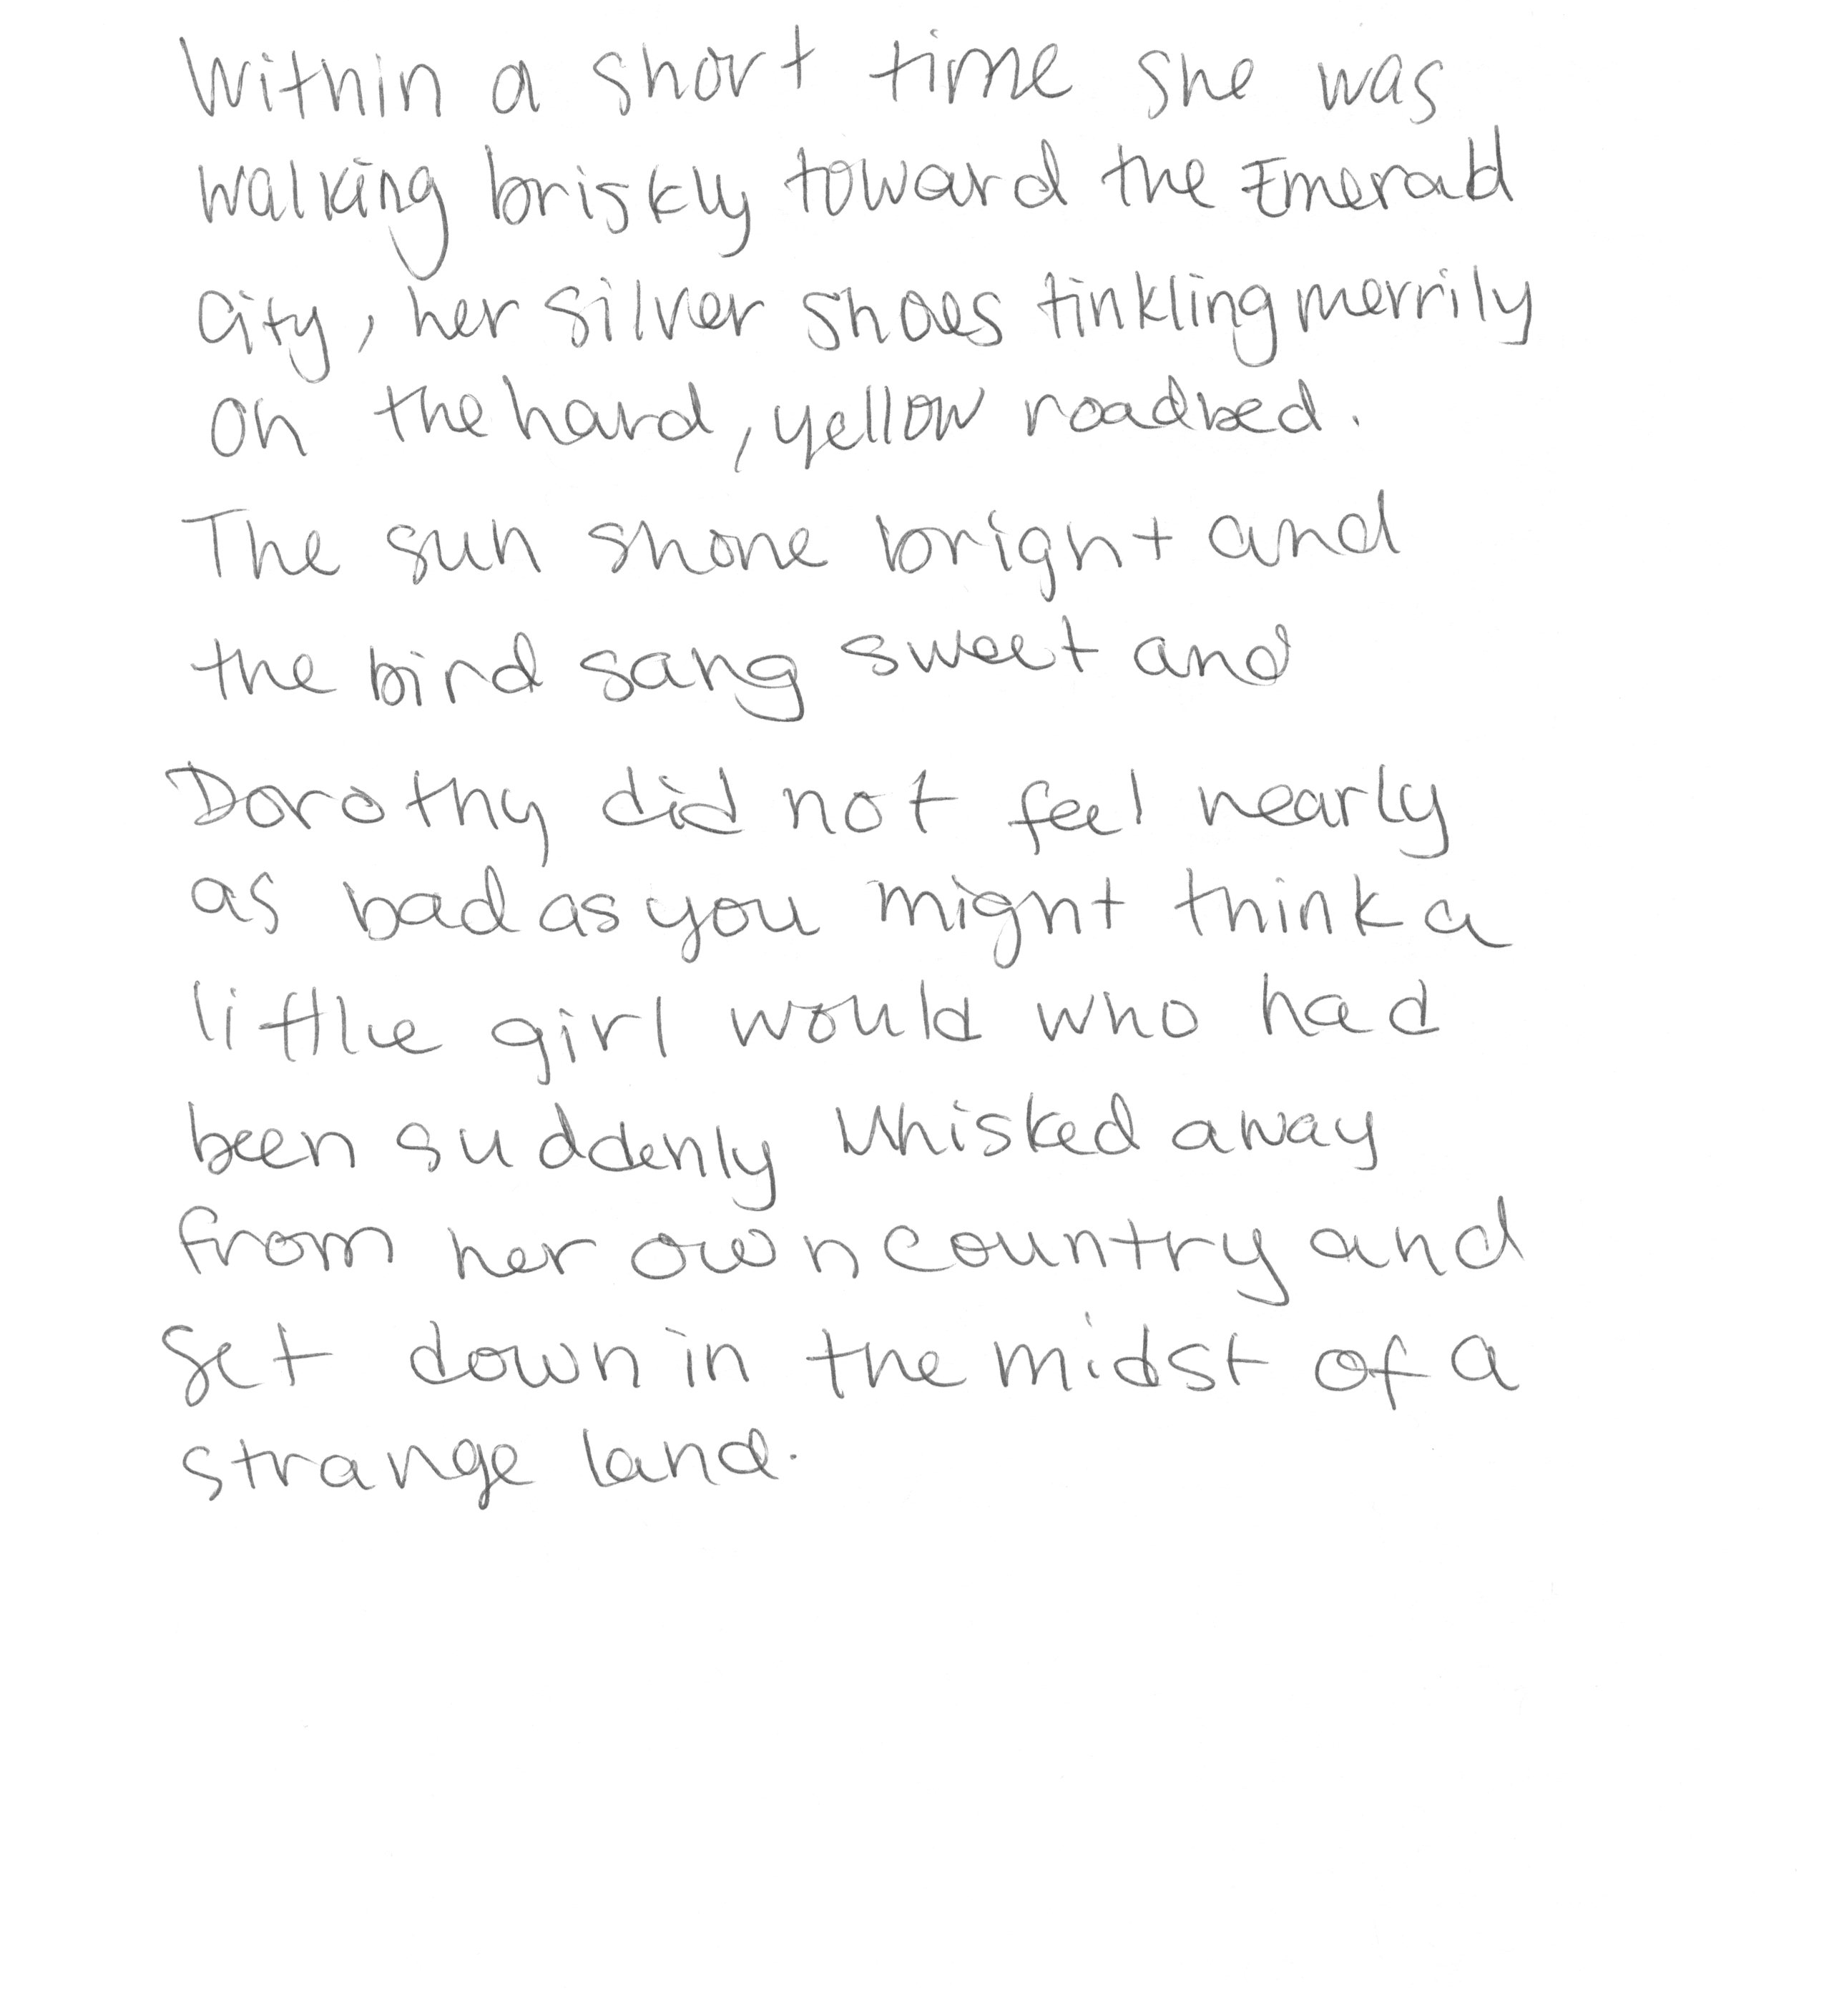 Within a short time she was
walking briskly toward the Emerald
City, her silver shoes tinkling merrily
on the hard, yellow roadbed.
The sun shone bright and
the bird sang sweet and
Dorothy did not feel nearly
as bad as you might think a
little girl would who had
been suddenly whisked away
from her own country and
set down in the midst of a
strange land.